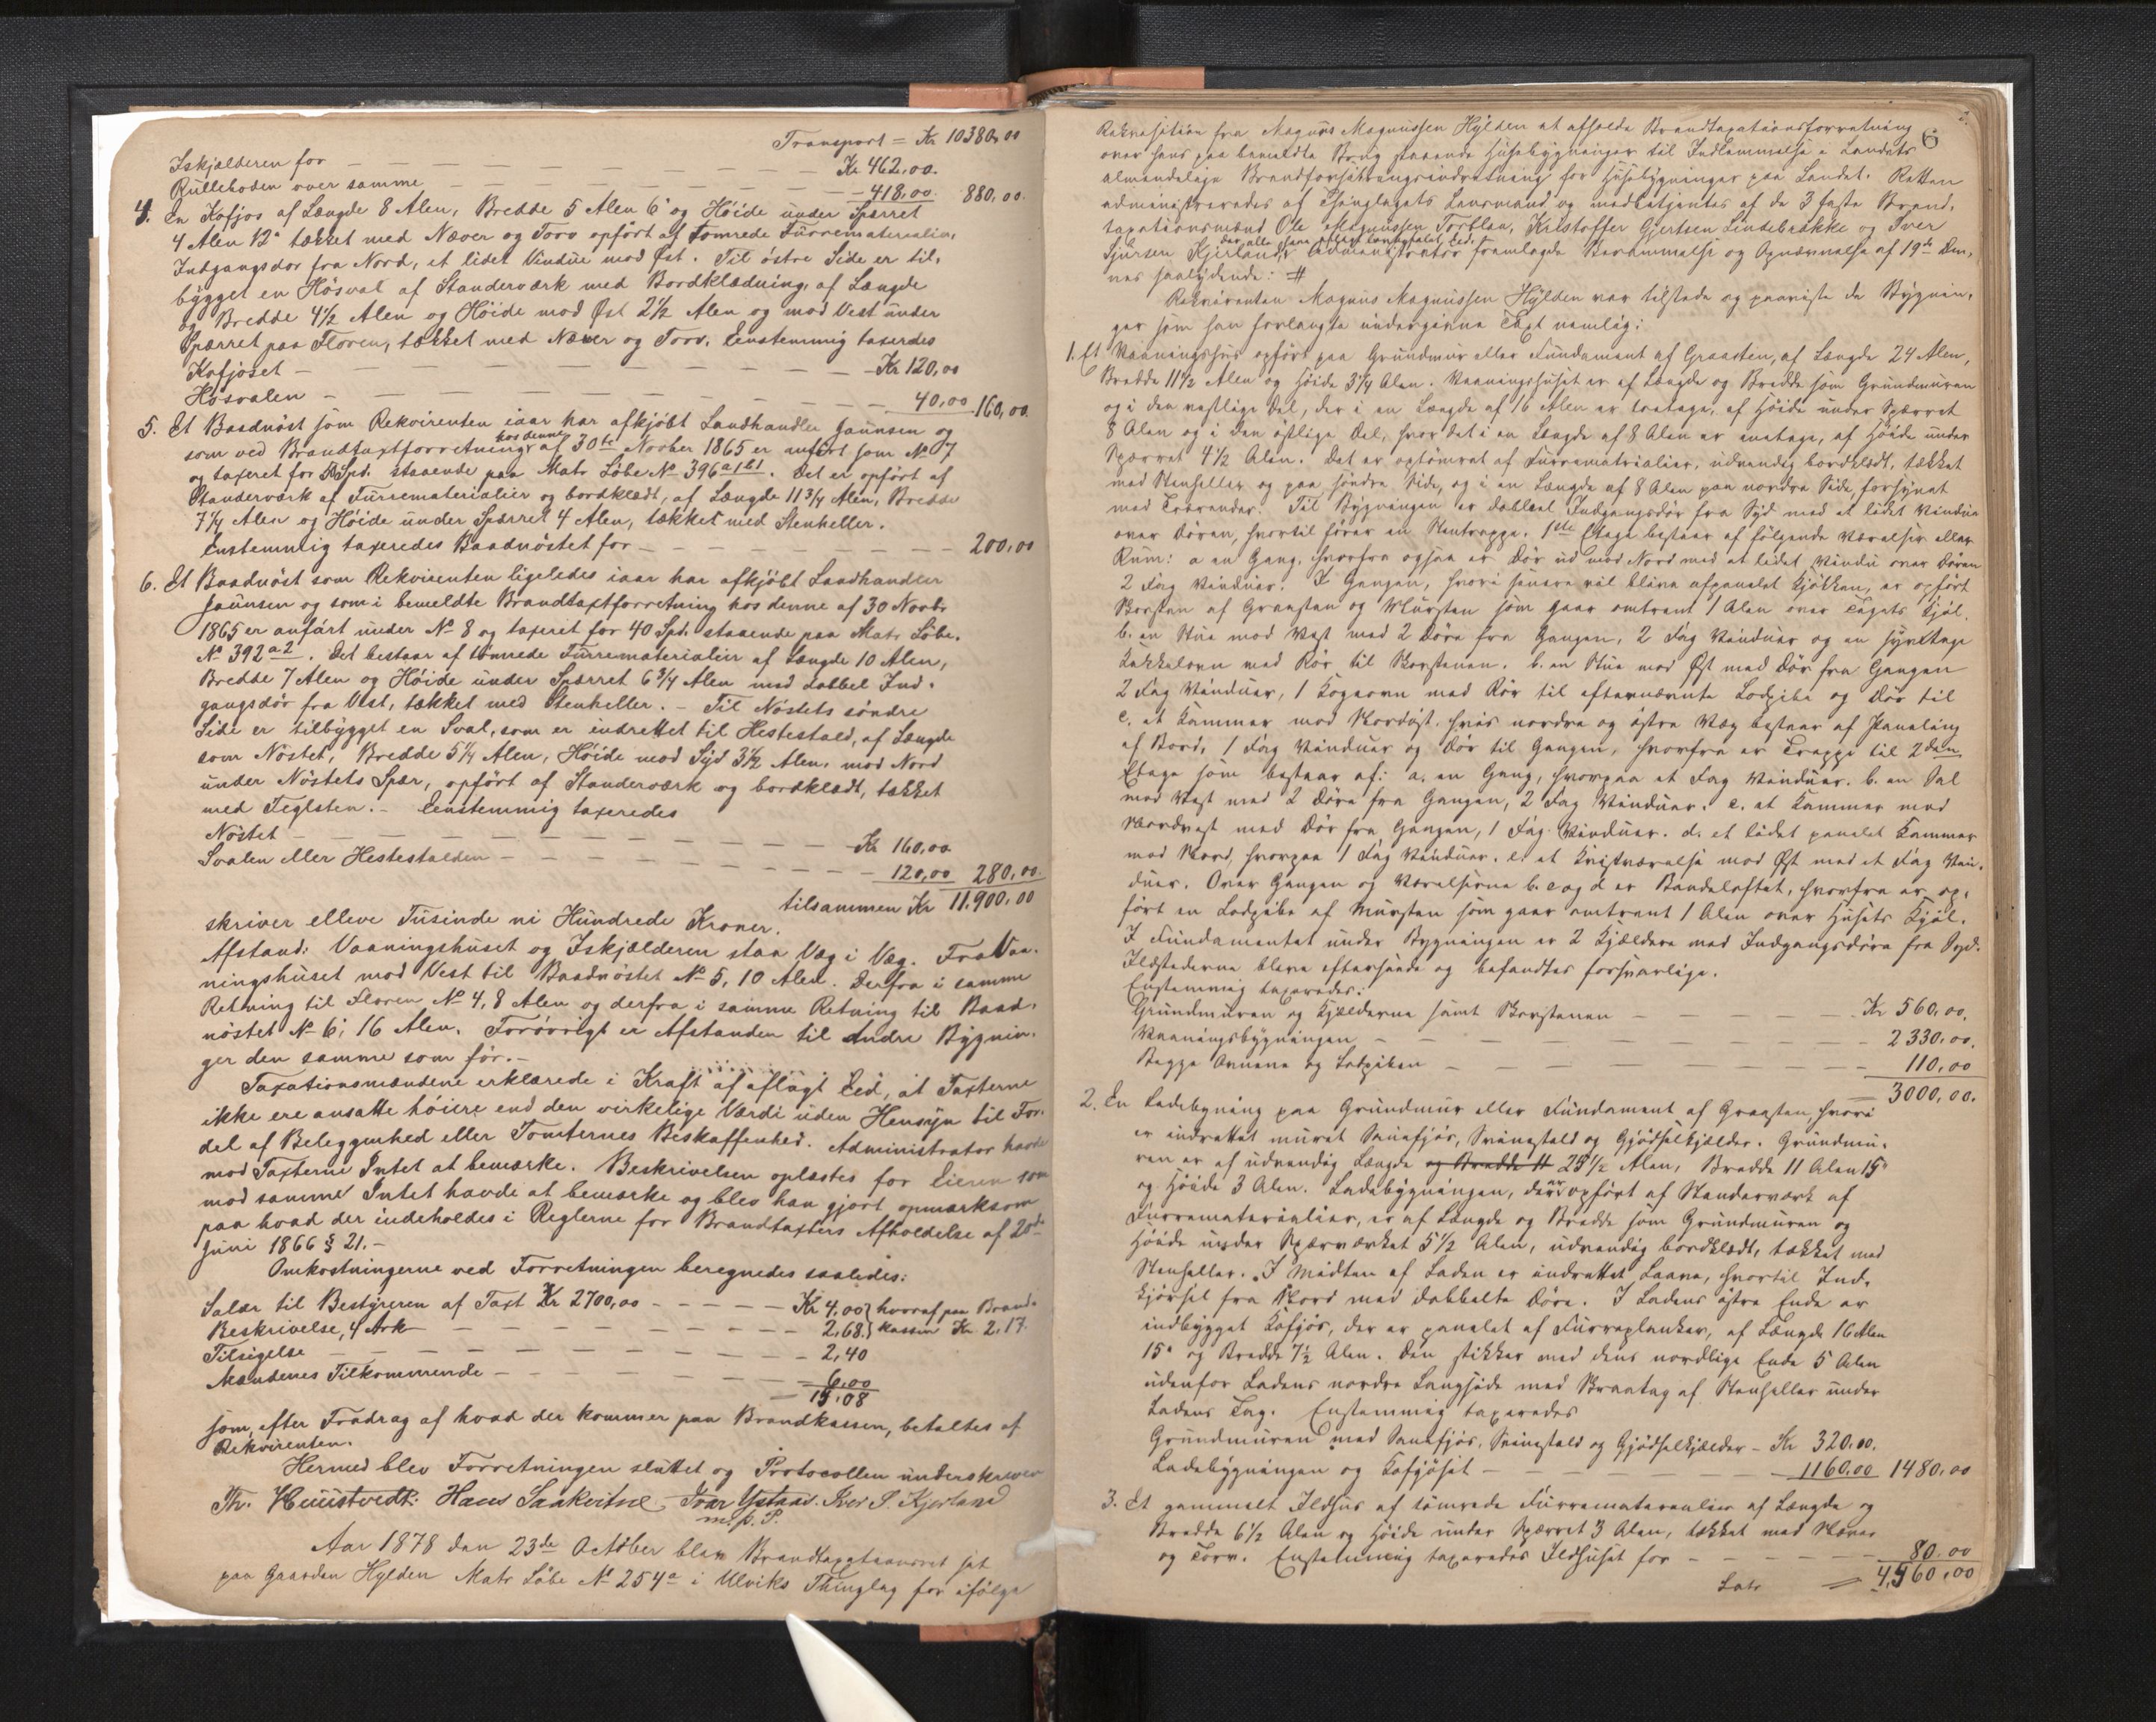 Transport = Kr 10380,00
Iskjælderen for — — — — — Kr 462,00.
Rulleboden over samme — — — — — 418,00. 880,00.
4. En Kofjos af Længde 8 Alen, Bredde 5 Alen 6" og Höide under Spærret
4 Alen 12" tækket med Næver og Torv opført af tømrede Furrematerialier,
Indgangsdør fra Nord, et lidet Vindue mod Øst. Til østre Side er til-
bygget en Høsval af Standerværk med Bordklædning, af Længde
og Bredde 4½ Alen og Höide mod Øst 2½ Alen og mod Vest under
Spærret paa Floren, tækket med Næver og Torv. Eenstemmig taxerdes
Kofjøset — — — — — Kr 120,00
Høsvalen — — — — — 40,00 160,00.
5. Et Baadnöst som Rekvirenten iaar har afkjöbt Landhandler Jaunsen og
som ved Brandtaxtforretning hos denne af 30te Novber 1865 er anført som No 7
og taxeret for Spd. staaende paa Matr Löbe No 396a1b1. Det er opført af
Standerværk af Furrematerialier og bordklædt, af Længde 11¾ Alen, Bredde
7¼ Alen og Höide under Spærret 4 Alen, tækket med Stenheller.
Eenstemmig taxeredes Baadnöstet for — — — — — 200,00
6. Et Baadnöst som Rekvirenten ligeledes iaar har afkjöbt Landhandler
Jaunsen og som i bemeldte Brandtaxtforretning hos denne af 30 Novbr
1865 er anført under No 8 og taxeret for 40 Spd. staaende paa Matr Löbe.
No 392a2. Det bestaar af tömrede Furrematerialier af Længde 10 Alen,
Bredde 7 Alen og Höide under Spærret 6¾ Alen med dobbel Ind-
gangsdör fra Vest, tækket med Stenheller. – Til Nöstets söndre
Side er tilbygget en Sval, som er indrettet til Hestestald, af Længde
som Nöstet, Bredde 5¼ Alen, Höide mod Syd 3½ Alen, mod Nord
under Nöstets Spær, opført af Standerværk og bordklædt, tækket
med Teglsten. – Eenstemmig taxeredes
Nöstet — — — — — Kr 160,00
Svalen eller Hestestalden — — — — — 120,00 280,00.
tilsammen Kr 11.900,00
skriver elleve Tusinde ni Hundrede Kroner.
Afstand: Vaaningshuset og Iskjælderen staa Væg i Væg. Fra Vaa-
ningshuset mod Vest til Baadnöstet No 5, 10 Alen. Derfra i samme
Retning til Floren No 4, 8 Alen og derfra i samme Retning til Baad-
nöstet No 6, 16 Alen. Forövrigt er Afstanden til andre Bygnin-
ger den samme som för. –
Taxationsmændene erklærede i Kraft af aflagt Eed, at Taxterne
ikke ere ansatte höiere end den virkelige Værdi uden Hensyn til For-
del af Beliggenhed eller Tomternes Beskaffenhed. Administrator havde
mod Taxterne Intet at bemærke. Beskrivelsen oplæstes for Eieren som
mod samme Intet havde at bemærke og blev han gjort opmærksom
paa hvad der indeholdes i Reglerne for Brandtaxters Afholdelse af 20de
Juni 1866 § 21. –
Omkostningerne ved Forretningen beregnedes saaledes:
Salær til Bestyreren af Taxt Kr 2700,00 — — — Kr 4,00 } hvoraf paa Brand-
Beskrivelse, 4 Ark — — — — — 2,68. } kassen Kr 2,17.
Tilsigelse — — — — — 2,40
Mændenes Tilkommende — — — — — 6,00
15,08
som, efter Fradrag af hvad der kommer paa Brandkassen, betaltes af
Rekvirenten.
Hermed blev Forretningen sluttet og Protocollen underskreven
Th. Huustvedt: Hans Saakvitne Ivar Ystaas. Iver S. Kjerland
m. p. P.
Aar 1878 den 23de October blev Brandtaxationsret sat
paa Gaarden Hylden Matr Löbe No 254a i Ulviks Thinglag for ifölge
6
Rekvisition fra Magnus Magnussen Hylden at afholde Brandtaxationsforretning
over hans paa bemeldte Brug staaende Husebygninger til Indlemmelse i Landets
almindelige Brandforsikringsindretning for Husebygninger paa Landet. Retten
administreredes af Thinglagets Lensmand og medbetjentes af de 3 faste Brand-
taxationsmænd Ole Magnussen Torblaa, Kristoffer Gjertsen Lindebrække og Iver
Sjursen Kjerland, der alle have aflagt Eed. Administrator fremlagde Berammelse og Opnævnelse af 19de Den-
nes saalydende: #
Rekvirenten Magnus Magnussen Hylden var tilstede og paaviste de Bygnin-
ger som han forlangte undergivne Taxt nemlig:
1. Et Vaaningshus opført paa Grundmur eller Fundament af Graasten, af Længde 24 Alen,
Bredde 11½ Alen og Höide 3¼ Alen. Vaaningshuset er af Længde og Bredde som Grundmuren
og i den vestlige Del, der i en Længde af 16 Alen er toetage, af Höide under Spærret
8 Alen og i den östlige Del, hvor det i en Længde af 8 Alen er eenetage, af Höide under
Spærret 4½ Alen. Det er optömret af Furrematerialier, udvendig bordklædt, tækket
med Stenheller og paa söndre Side, og i en Længde af 8 Alen paa nordre Side, forsynet
med Tagrender. Til Bygningen er dobbelt Indgangsdör fra Syd med et lidet Vindue
over Dören, hvortil förer en Stentrappe. 1ste Etage bestaar af fölgende Værelser eller
Rum: a en Gang, hvorfra ogsaa er Dör ud mod Nord med et lidet Vindu over Dören
2 Fag Vinduer. I Gangen, hvori senere vil blive afpanelet Kjökken, er opført
Skorsten af Graasten og Mursten som gaar omtrent 1 Alen over Tagets Kjöl.
b. en Stue mod Vest med 2 Döre fra Gangen, 2 Fag Vinduer og en fyretage
Kakkelovn med Rör til Skorstenen. b. en Stue mod Øst med Dör fra Gangen
2 Fag Vinduer, 1 Kogeovn med Rör til efternævnte Lodpibe og Dör til
c. et Kammer mod Nordöst, hvis nordre og östre Væg bestaar af Paneling
af Bord, 1 Fag Vinduer og Dör til Gangen, hvorfra er Trappe til 2den
Etage som bestaar af: a. en Gang, hvorpaa et Fag Vinduer. b. en Sal
mod Vest med 2 Döre fra Gangen, 2 Fag Vinduer. c. et Kammer mod
Nordvest med Dör fra Gangen, 1 Fag Vinduer. d. et lidet panelet Kammer
mod Nord, hvorpaa 1 Fag Vinduer. e. et Kvistværelse mod Øst med et Fag Vin-
duer. Over Gangen og Værelserne b. c og d er Bandeloftet, hvorfra er op-
fört en Lodpibe af Mursten som gaar omtrent 1 Alen over Husets Kjöl.
I Fundamentet under Bygningen er 2 Kjældere med Indgangsdöre fra Syd.
Ildstederne bleve efterseede og befandtes forsvarlige.
Enstemmig taxeredes:
Grundmuren og Kjælderne samt Skorstenen — — — Kr 560,00.
Vaaningsbygningen — — — — — 2330,00.
Begge Ovnene og Lodpiben — — — — — 110,00
3000,00.
2. En Ladebygning paa Grundmur eller Fundament af Graasten, hvori
er indrettet muret Sauefjös, Svinestald og Gjödselkjelder. Grundmu-
ren er af udvendig Længde og Bredde 11 25½ Alen, Bredde 11 Alen 15"
og Höide 3 Alen. Ladebygningen, der er opført af Standerværk af
Furrematerialier, er af Længde og Bredde som Grundmuren og
Höide under Spærværket 5½ Alen, udvendig bordklædt, tækket med
Stenheller. I Midten af Laden er indrettet Laave, hvortil Ind-
kjörsel fra Nord med dobbelte Döre. I Ladens östre Ende er
indbygget Kofjös, der er panelet af Furreplanker, af Længde 16 Alen
15" og Bredde 7½ Alen. Den stikker med dens nordlige Ende 5 Alen
udenfor Ladens nordre Langside med Skraatag af Stenheller under
Ladens Tag. Enstemmig taxeredes
Grundmuren med Sauefjös, Svinestald og Gjödselkjælder – Kr 320,00.
Ladebygningen og Kofjöset — — — — — 1160.00 1480,00
3. Et gammelt Ildhus af tömrede Furrematerialier af Længde og
Bredde 6½ Alen og Höide under Spærret 3 Alen, tækket med Næver
og Torv. Enstemmig taxeredes Ildhuset for — — — 80.00
Latr = 4,560,00